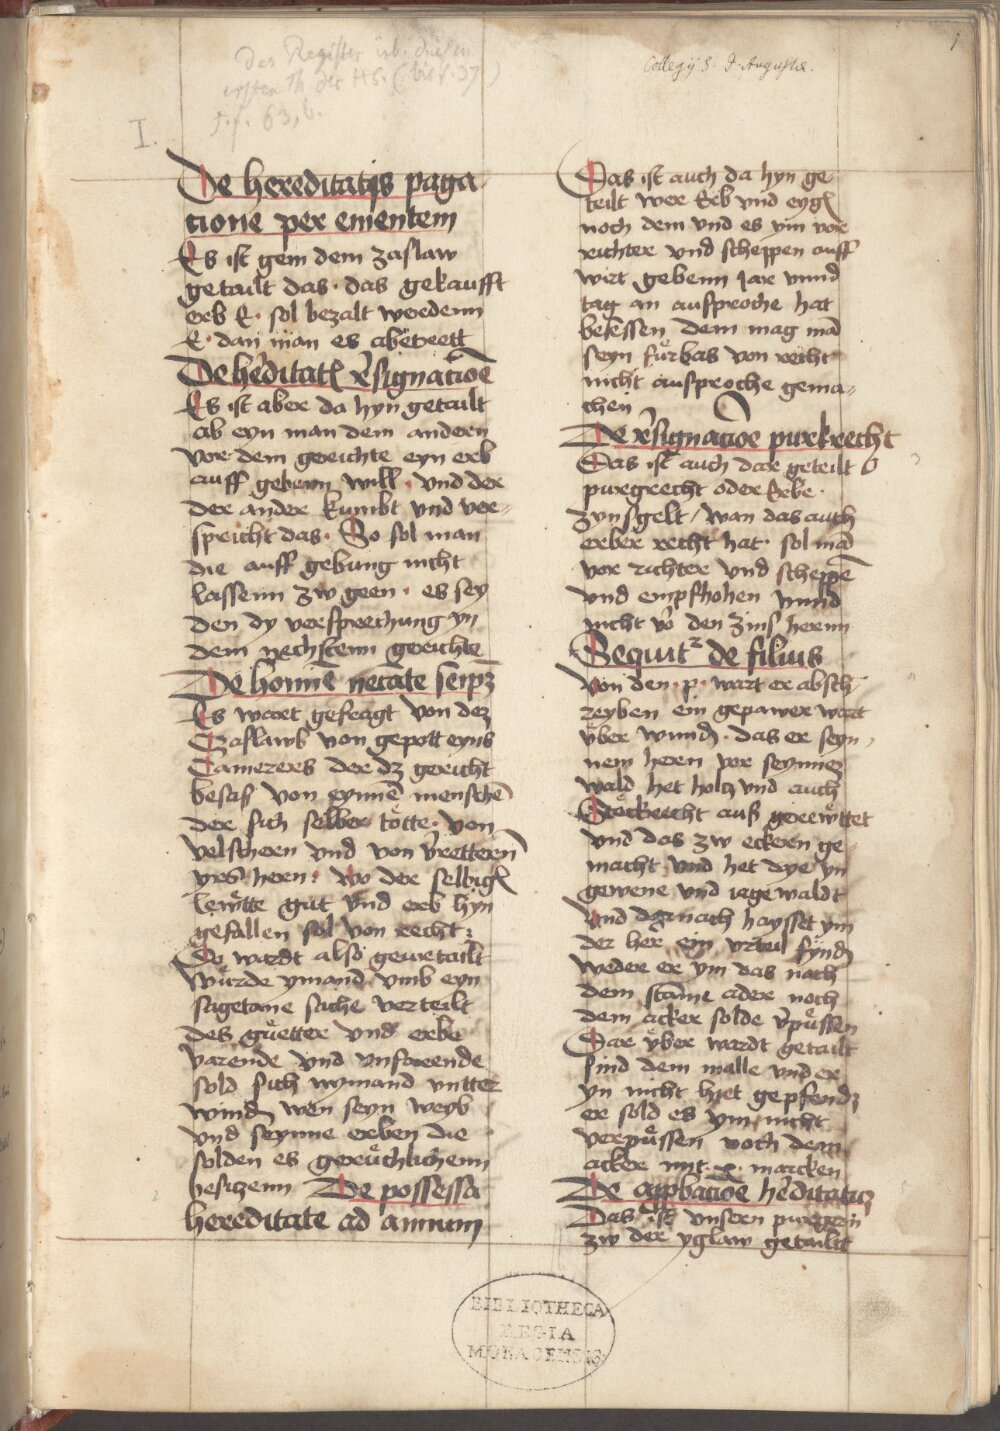 Das Register üb. diesen
ersten Th. der HS. (bis f. 37)
s. f. 63, b.
I.
Collegij S. J. Augustæ.
1
De hereditatis paga
cione per ementem
Es ist gem dem zaslaw
getailt das · das gekaufft
erb E · sol bezalt werdenn
E · dan man es abetrett
De h'editat' r'signacione
Es ist aber da hyn getailt
ab eyn man dem andern
vor dem gerichte eyn erb
auff gebenn will · vnd der
der ander kumbt vnd ver-
spricht das · So sol man
die auff gebung nicht
lassenn zw geen · es sey
den dy versprechung yn
dem nechstenn gerichte
De homine necante seipm
Es wart gefragt von dez
Czaslawb von gepott eyns
Camerers der dz gericht
besass von eynnē menschē
der sich selber tötte · von
velschern vnd von v'retternn
yrs hern · wo der selbig
lewtte gut vnd erb hyn
gefallen sol von recht :
Do wardt also gewetailt
würde ymand vmb eyn
sagetane sache verteilt
des guetter vnd erbe
varende vnd vnfarende
sold sich nymand vntter
wind wen seyn weyb
vnd seynne erben die
solden es geruchlichenn
besitzenn De possessa
hereditate ad annum
Das ist auch da hyn ge
teilt wer Erb vnd eyg
noch dem vnd es ym vor
richter vnd scheppen auff
wirt gebenn Jar vnnd
tag an aufsproche hat
besessen dem mag mā
seyn fürbas von recht
nicht aufsproche gema-
chen
De r'signacioe purkrecht
Das ist auch dar geteilt
purgrecht oder Erbe ·
zynsgelt / wan das auch
erber recht hat · sol mā
vor richter vnd scheppē
vnd empfhohen vnnd
nicht vō den zinss hernn
Sequit' de filiis
Von den · p · wart er absch
reyben ein gepawer wart
über wund · das er seyn
nem hern vor seynnez
wald het holcz vnd auch
Stöckrecht auss gerewttet
vnd das zw eckern ge
macht vnd het dye yn
gewene vnd iage waldt
Vnd dornach haysset ym
der her ein vrteil fynd
weder er ym das nach
dem stamme ader noch
dem acker solde v'püssen
Dar über wardt getailt
sind dem malle vnd er
yn nicht hiet gepfendz
er sold es ym nicht
verpüssen noch dem
acker mit · x · marcken
De appbacioe h'editatis
Das ist vnsern purgern
zw der yglaw getailtt
BIBLIOTHECA
REGIA
MONACENSIS.